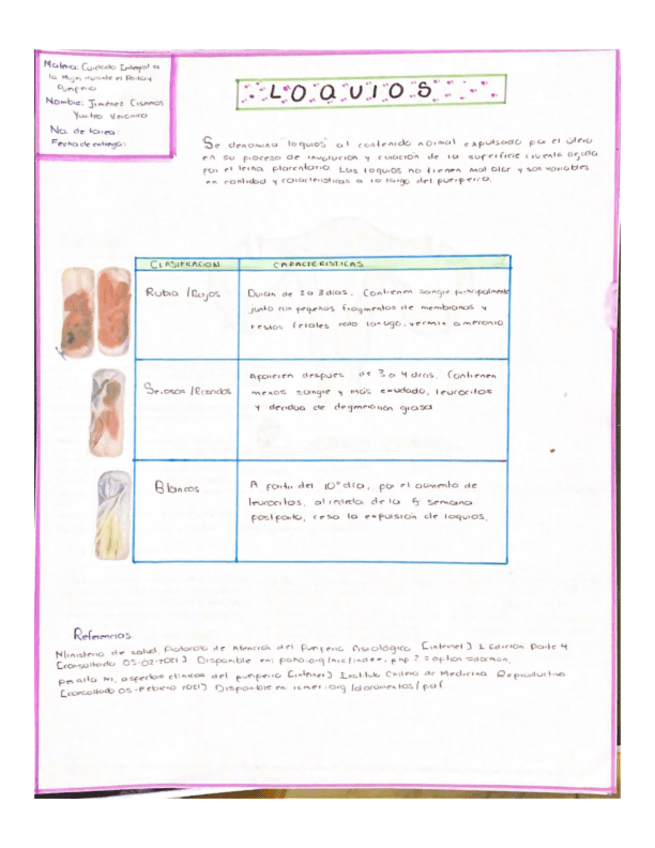 Materia: Cuidado Integral a
la Mujer durante el Parto y
Puerperio
Nombre: Jiménez Cisneros
Verónica
No. de tarea:
Fecha de entrega:
LOQUIOS
Se denomina "loquios" al contenido normal expulsado por el útero
en su proceso de involución y curación de la superficie cruenta dejada
por el lecho placentario Los loquios no tienen mal olor y son variables
en cantidad y características a lo largo del puerperio.
CLASIFICACION
CARACTERISTICAS
Rubra / Rojos
Duran de 2 a 3 dias. Contienen sangre principalmente
junto con pequeños fragmentos de membranas y
restos fetales como lanugo, vermix o meconio
Serosos / Rosados
Aparecen despues de 3 o 4 dias. Contienen
menos sangre y más exudado, leucocitos
y decidua de degeneración grasa
Blancos
A partir del 10° dia, por el aumento de
leucocitos, alrededor de la 5 semana
postparto, cesa la expulsión de loquios.
Referencias
Ministerio de salud, Protocolo de Atención del Puerperio Fisiológico [internet] Edición Parte 4
[consultado 05-02-2021] Disponible en: paho.org/nic/index.php?
aspectos clinicos del puerperio [internet] Instituto Chileno de Medicina Reproductiva
[consultado 05-Febrero 2021] Disponible en: icmer.org/documentos/pdf